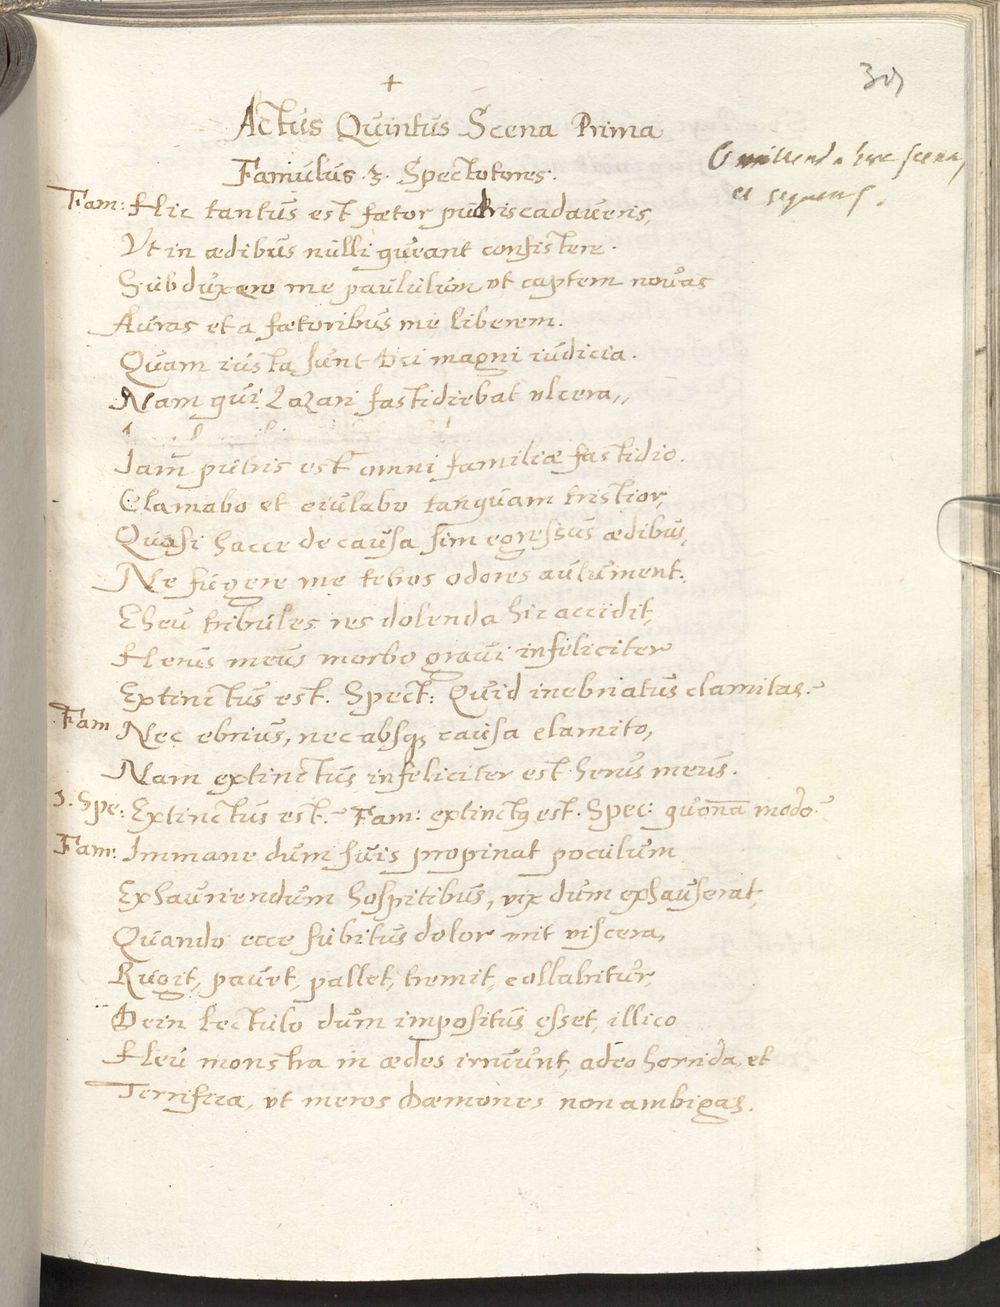 +
30
Actus Quintus Scena Prima
Famulus 3. Spectotores.
Omittenda hæc scena,
et sequens.
Fam: Hic tantus est fœtor putris cadaueris,
Vt in ædibus nulli queant consistere.
Subduxero me paululum vt captem nouas
Auras et a fœtoribus me liberem.
Quam iusta sunt Dei magni iudicia.
Nam qui Lazari fastidiebat vlcera,,
Iam putris est omni familiæ fastidio.
Clamabo et eiulabo tanquam tristior,
Quasi hacce de causa sim egressus ædibus,
Ne fugere me tetros odores autument.
Eheu tribules res dolenda hic accidit,
Herus meus morbo graui infeliciter
Extinctus est. Spect: Quid inebriatus clamitas?
Fam Nec ebrius, nec absq; causa clamito,
Nam extinctus infeliciter est herus meus.
3. Spe: Extinctus est? Fam: extinctꝯ est. Spec: quonā modo?
Fam: Immane dum suis propinat poculum
Exhauriendum hospitibus, vix dum exhauserat,
Quando ecce subitus dolor init viscera,
Rugit, pauet, pallet, tremit, collabitur,
Dein lectulo dum impositus esset, illico
Heu monstra in ædes irruunt, adeo horrida, et
Terrifica, vt meros Dæmones non ambigas.